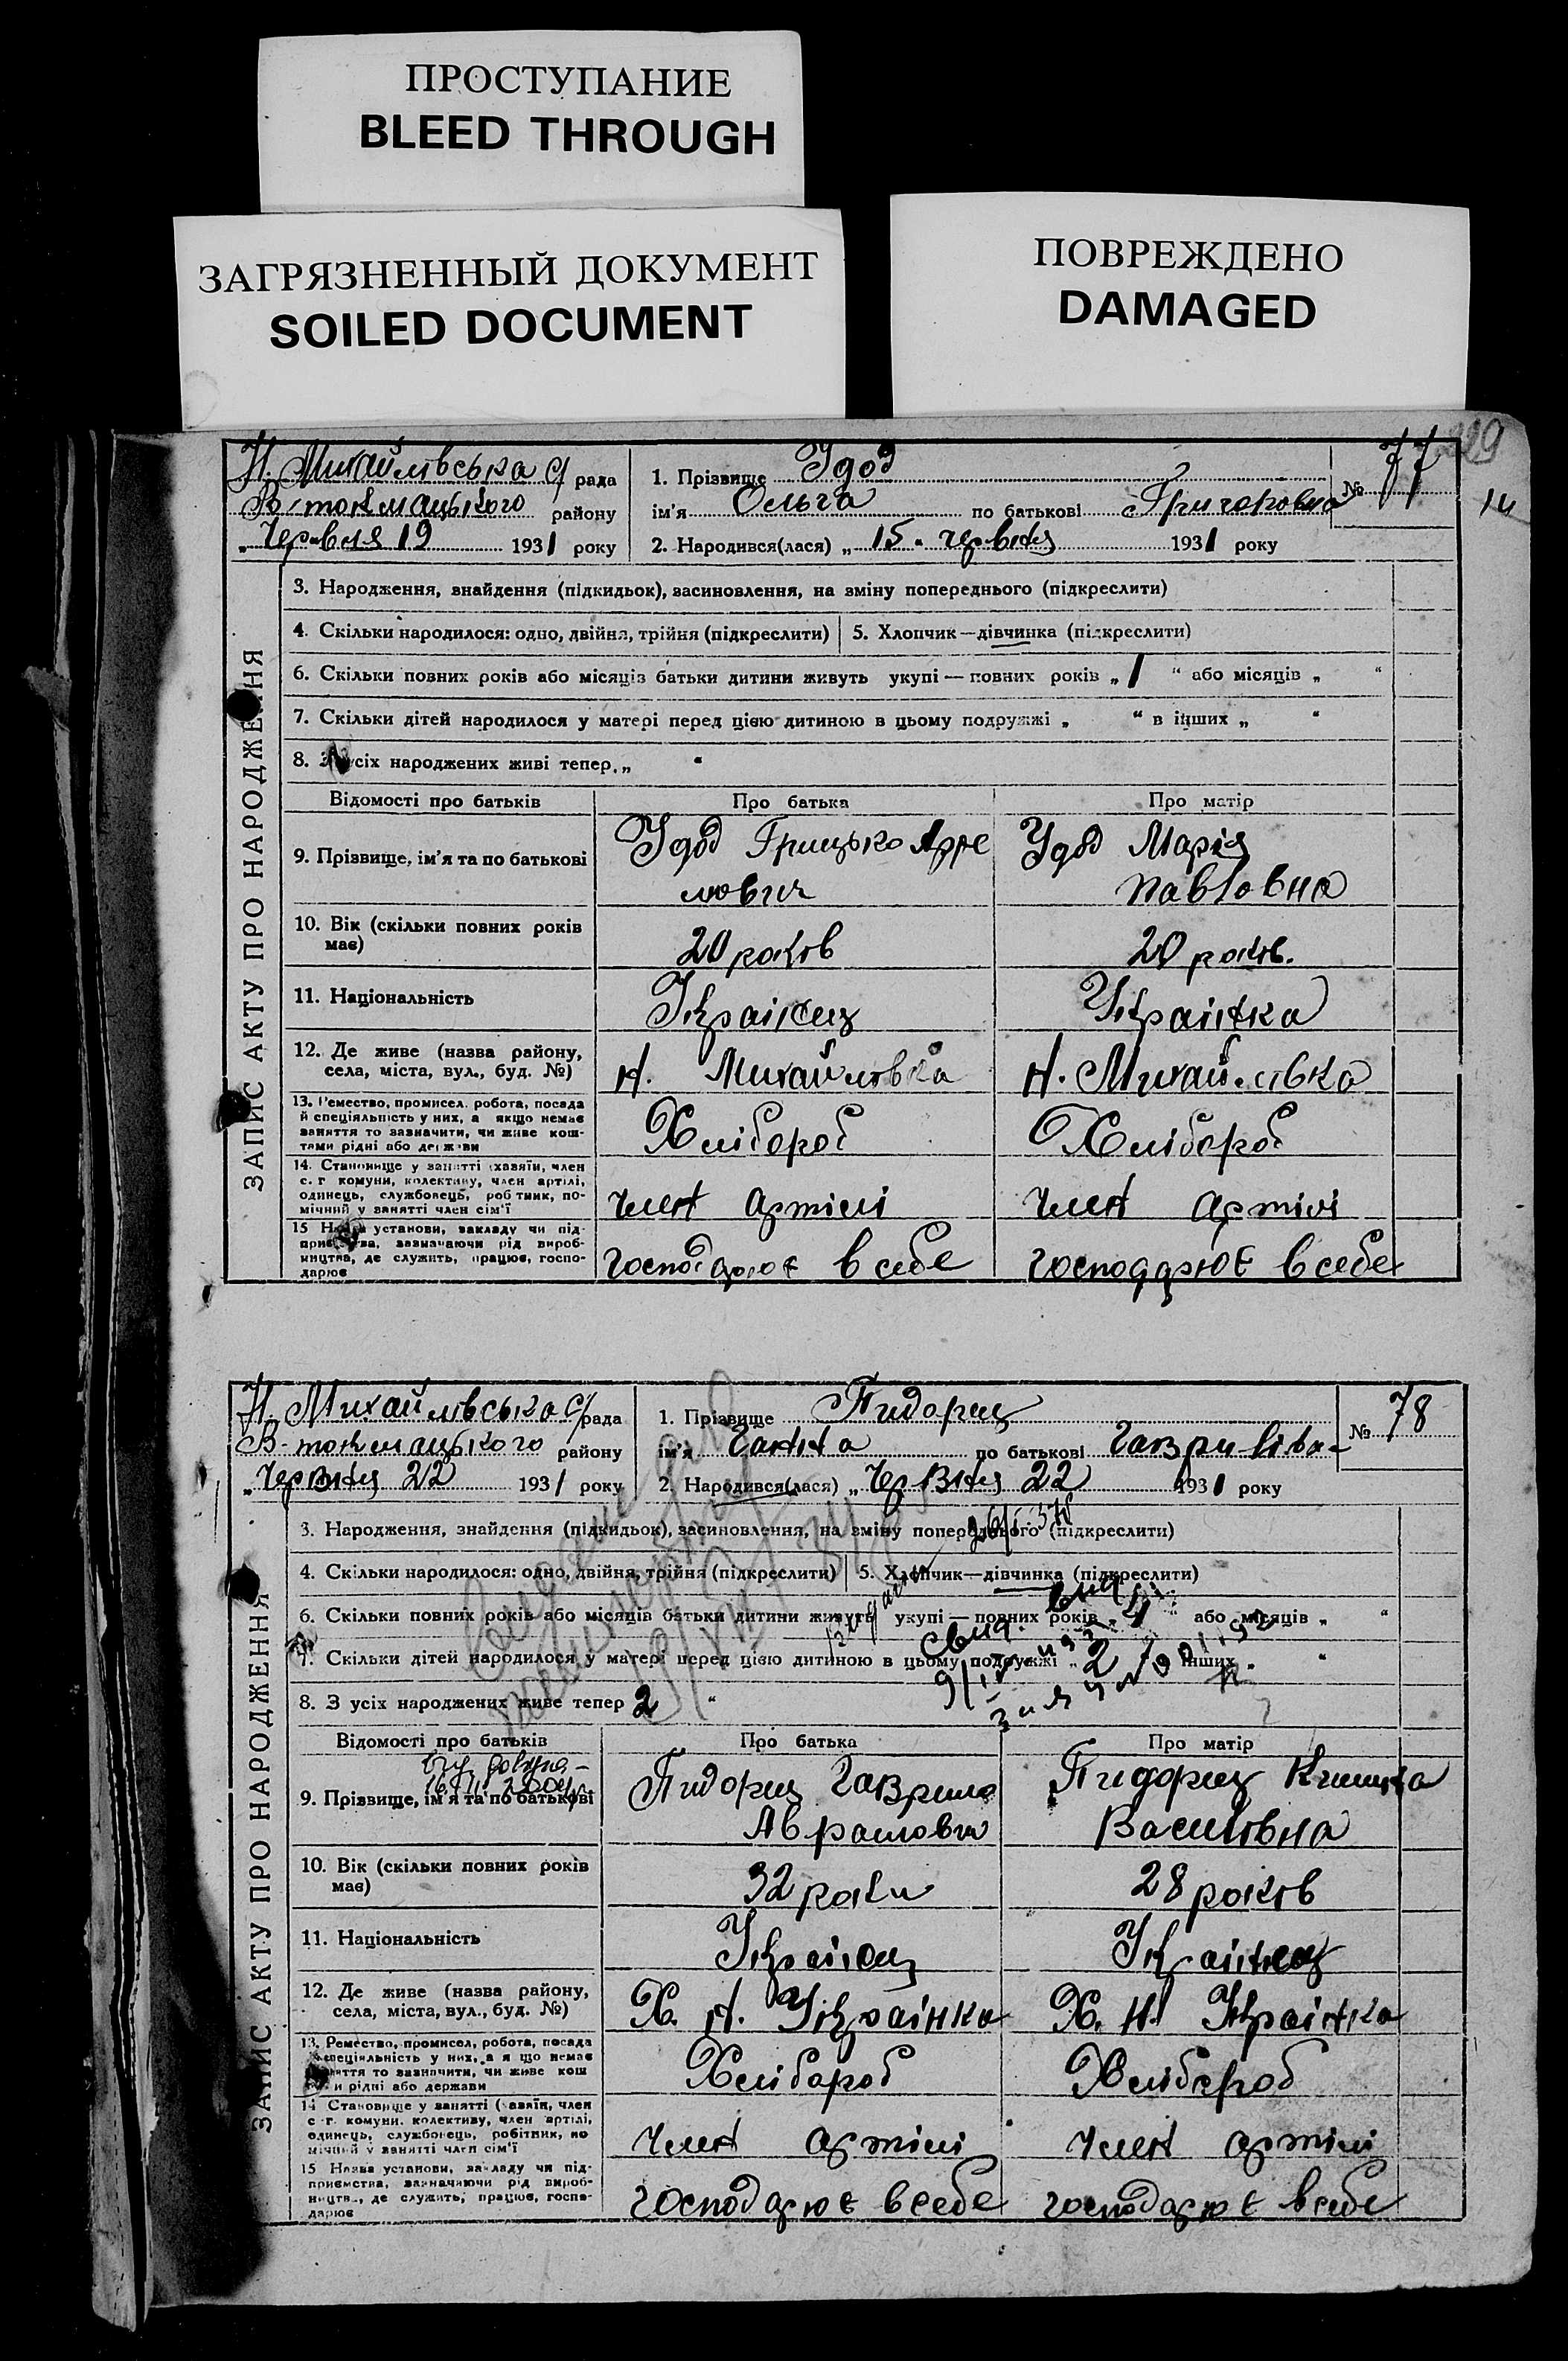 ПРОСТУПАНИЕ
BLEED THROUGH
ЗАГРЯЗНЕННЫЙ ДОКУМЕНТ
SOILED DOCUMENT
ПОВРЕЖДЕНО
DAMAGED
229
14
ЗАПИС АКТУ ПРО НАРОДЖЕННЯ
Н. Михайлівська с/рада
В-токмацького району
„Червня 19 1931 року
1. Прізвище Удод
ім'я Ольга по батькові Григоровна
2. Народився(лася) „15" червня 1931 року
№ 77
3. Народження, знайдення (підкидьок), засиновлення, на зміну попереднього (підкреслити)
4. Скільки народилося: одно, двійня, трійня (підкреслити) 5. Хлопчик—дівчинка (підкреслити)
6. Скільки повних років або місяців батьки дитини живуть укупі — повних років „1" або місяців „ "
7. Скільки дітей народилося у матері перед цією дитиною в цьому подружжі „ " в інших „ "
8. З усіх народжених живі тепер „ "
Відомості про батьків Про батька Про матір
9. Прізвище, ім'я та по батькові
Удод Грицько
Удод Марія
Павловна
10. Вік (скільки повних років
має)
20 років
20 років.
11. Національність
Українец
Українка
12. Де живе (назва району,
села, міста, вул., буд. №)
Н. Михайлівка
Н. Михайлівка
13. Ремество, промисел, робота, посада
й спеціяльність у них, а якщо немає
заняття то зазначити, чи живе кош-
тами рідні або держави
Хлібороб
Хлібороб
14. Становище у занятті (хазяїн, член
с.-г комуни, колективу, член артілі,
одинець, службовець, робітник, по-
мічний у занятті член сім'ї
Член артілі
Член артілі
15 Назва установи, закладу чи під-
приємства, зазначаючи рід вироб-
ництва, де служить, працює, госпо-
дарює
господарює в себе
господарює в себе
ЗАПИС АКТУ ПРО НАРОДЖЕННЯ
Н. Михайлівська с/рада
В-токмацького району
„Червня 22 1931 року
1. Прізвище Пидорец
ім'я Ганна по батькові
2. Народився(лася) „Червня 22 1931 року
№ 78
3. Народження, знайдення (підкидьок), засиновлення, на зміну попереднього (підкреслити)
4. Скільки народилося: одно, двійня, трійня (підкреслити) 5. Хлопчик—дівчинка (підкреслити)
6. Скільки повних років або місяців батьки дитини живуть укупі — повних років „ " або місяців „ "
7. Скільки дітей народилося у матері перед цією дитиною в цьому подружжі „2 інших „ "
8. З усіх народжених живе тепер 2 "
Відомості про батьків Про батька Про матір
9. Прізвище, ім'я та по батькові
Пидорец Гаврило
Аврамович
Пидорец
Василівна
10. Вік (скільки повних років
має)
32 роки
28 років
11. Національність
Українец
Українец
12. Де живе (назва району,
села, міста, вул., буд. №)
Х. Н. Українка
Х. Н. Українка
13. Ремество, промисел, робота, посада
й спеціяльність у них, а якщо немає
заняття то зазначити, чи живе кош
тами рідні або держави
Хлібороб
Хлібороб
14 Становище у занятті (хазяїн, член
с-г. комуни, колективу, член артілі,
одинець, службовець, робітник, по
мічний у занятті член сім'ї
Член артілі
Член артілі
15 Назва установи, закладу чи під-
приємства, зазначаючи рід вироб-
ництва, де служить, працює, госпо-
дарює
господарює в себе
господарює в себе